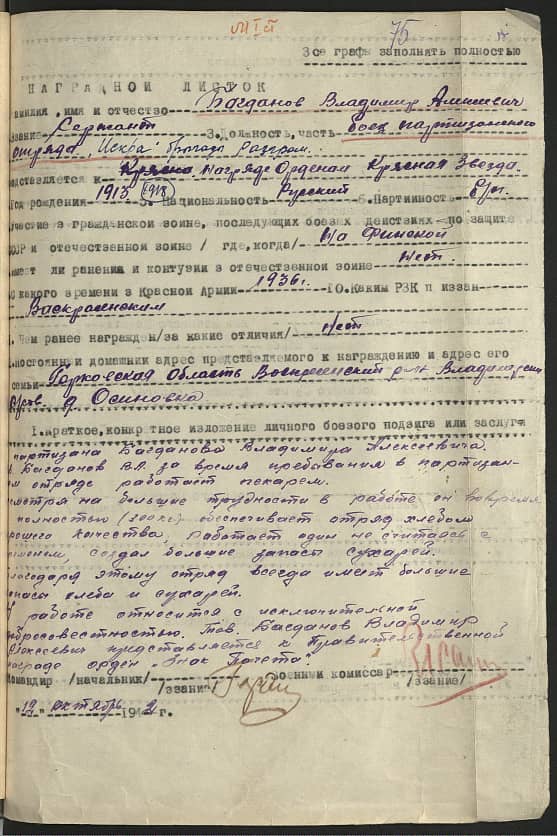 75
Все графы заполнять полностью
НАГРАДНОЙ ЛИСТОК
амилия, имя и отчество Багданов Владимир
звание Сержант 3. Должность, часть боец партизанского
отряда "Искра" бригады Разгром.
редставляется к награде Орденом Красная Звезда.
Год рождения 1913 (1913) 5. Национальность Русский 6. Партийность б/п.
частие в гражданской войне, последующих боевых действиях по защите
СССР и отечественной войне / где, когда/ На Финской
меет ли ранения и контузии в отечественной войне Нет.
С какого времени в Красной Армии 1936 г. 10. Каким РВК призван
Воскресенским
. Чем ранее награжден/за какие отличия/ Нет
.постоянный домашний адрес представляемого к награждению и адрес его
семьи Горьковская область Воскресенский р-н
д. Осиновка
1.краткое, конкретное изложение личного боевого подвига или заслуг
партизана Багданова Владимира Алексеевича.
Багданов В.А. за время пребывания в партизан-
м отряде работает пекарем.
смотря на большие трудности в работе он вовремя
полностью обеспечивает отряд хлебом
ошего качества, работает один не считаясь с
менем, создал большие запасы сухарей.
лагодаря этому отряд всегда имеет большие
апасы хлеба и сухарей.
К работе относится с исключительной
обросовестностью. Тов. Багданов Владимир
Алексеевич представляется к Правительственной
награде орден "Знак Почета"
Командир /начальник/ Военный комиссар
/звание/ /звание/
"12" октябрь 1942 г.